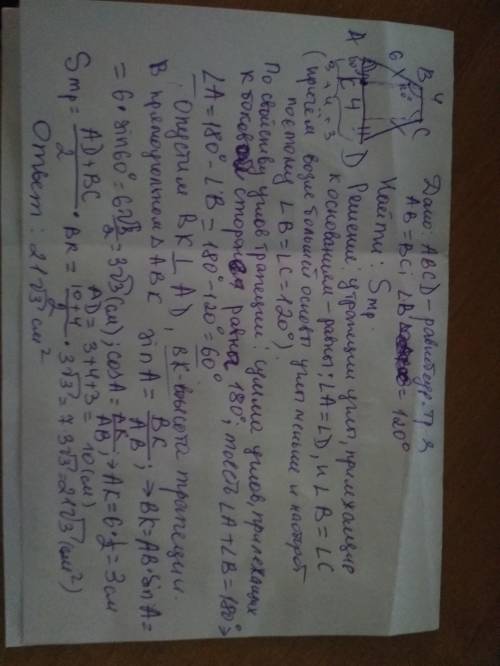 B 4
6
120°
C
A
60°
K 4 H
D
3 + 4 + 3
Дано: ABCD – равнобедр. тр.
AB = BC; ∠B = 120°
Найти: Sтр.
Решение: у трапеции углы, прилежащие
к основаниям – равны: ∠A = ∠D, и ∠B = ∠C
(причём возле большей основы углы меньше и наоборот
поэтому ∠B = ∠C = 120°).
По свойству углов трапеции: сумма углов, прилежащих
к боковой стороне равна 180°, то есть ∠A + ∠B = 180° ⇒
∠A = 180° - ∠B = 180° - 120° = 60°
Опустим BK ⊥ AD, BK – высота трапеции.
В прямоугольном Δ ABK sin A = BK/AB; ⇒ BK = AB · sin A =
= 6 · sin 60° = 6√3/2 = 3√3 (см); cos A = AK/AB, ⇒ AK = 6 · 1/2 = 3 см
AD = 3 + 4 + 3 =
10 (см)
Sтр = AD + BC/2 · BK = 10 + 4/2 · 3√3 = 7 · 3√3 = 21√3 (см²)
Ответ: 21√3 см²